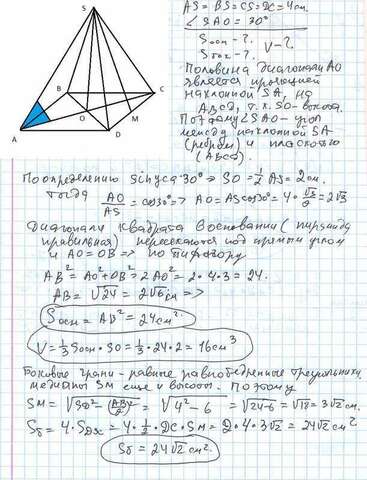 S
B
C
O
A
D
M
AS = BS = CS = DC = 4см.
∠SAO = 30°
Sосн - ?.
Sбок - ?.
V - ?.
Половина диагонали AO
является проекцией
наклонной SA, на
ABCD, т.к. SO - высота.
Поэтому ∠SAO - угол
между наклонной SA -
(ребром) и плоскостью
(ABCD).
По определению sinуса 30° ⇒ SO = 1/2 AS = 2см.
Тогда AO/AS = cos30° ⇒ AO = AS cos30° = 4·√3/2 = 2√3
Диагонали квадрата в основании (пирамида
правильная) пересекаются под прямым углом
и AO = OB ⇒ по пифагору
AB² = AO² + OB² = 2AO² = 2·4·3 = 24.
AB = √24 = 2√6 см ⇒
Sосн = AB² = 24см².
V = 1/3 Sосн·SO = 1/3·24·2 = 16см³
Боковые грани - равные равнобедренные треугольники,
медианы SM еще и высоты. Поэтому
SM = = √4² - 6 = √24-6 = √18 = 3√2 см.
Sб = 4·SDSC = 4·1/2·DC·SM = 2·4·3√2 = 24√2 см².
Sб = 24√2 см².